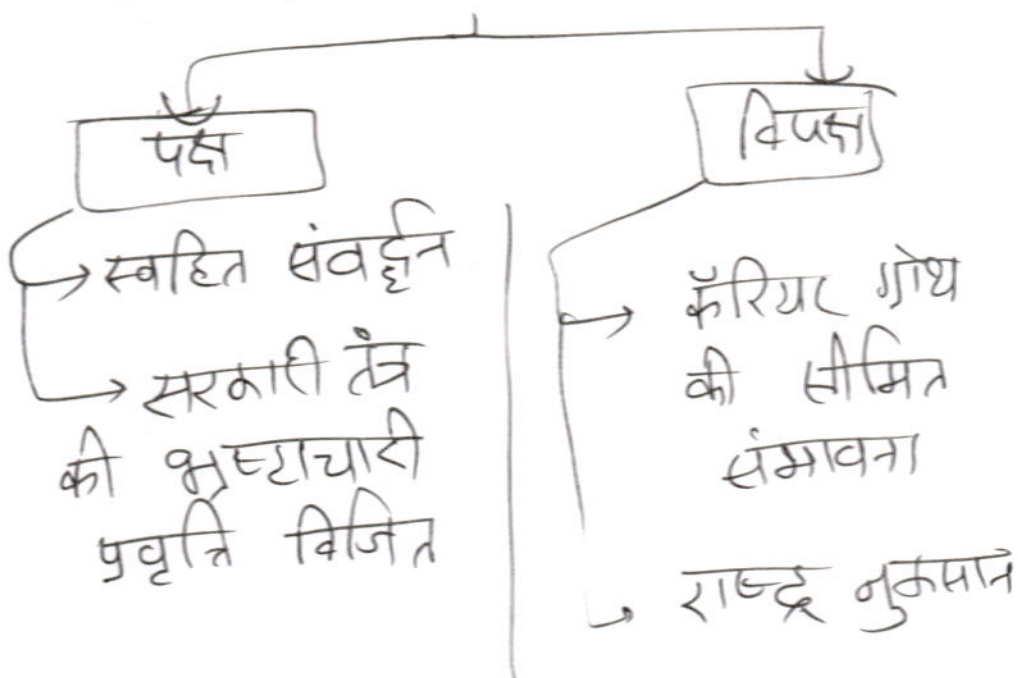 पक्ष
स्वहित संवर्द्धन
सरकारी तंत्र
की भ्रष्टाचारी
प्रवृत्ति विजित
विपक्ष
कॅरियर ग्रोथ
की सीमित
संभावना
राष्ट्र नुकसान